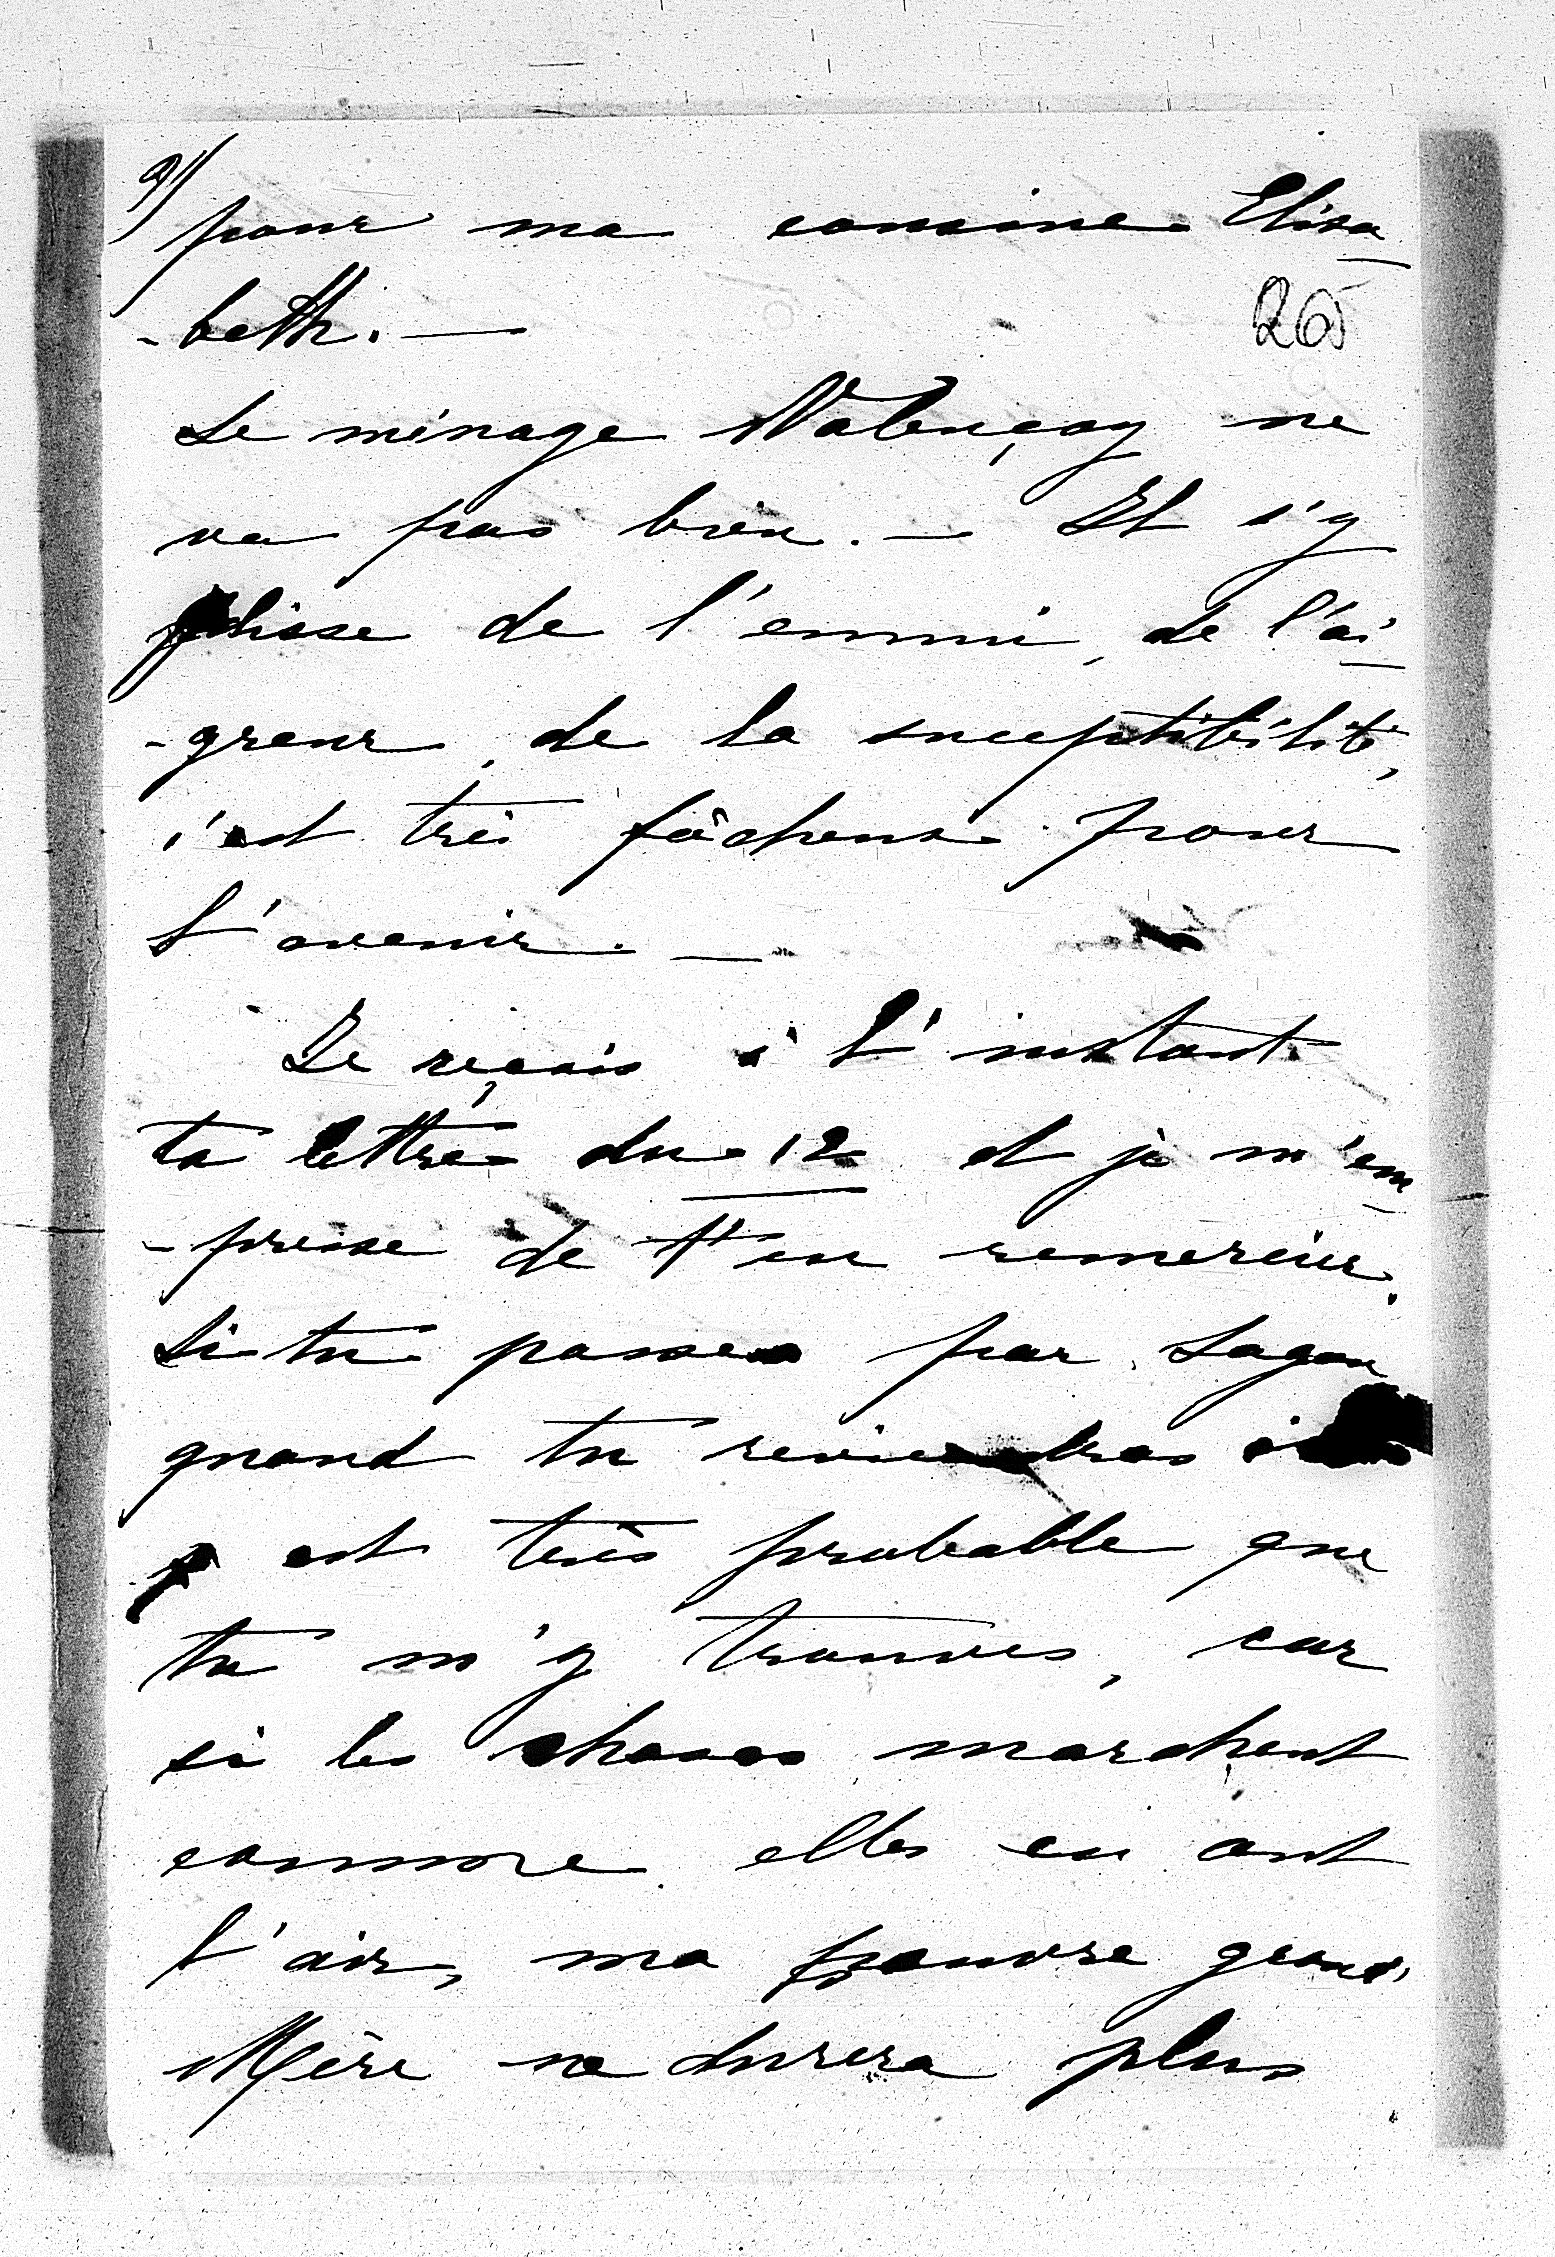 9/ pour ma cousine Elisa
-beth. —
26
Le ménage Valençay ne
va pas bien. — Il s'y
glisse de l'ennui, de l'ai
-greur, de la suceptibilité,
c'est très fâcheux pour
l'avenir. —
Je reçois à l'instant
ta lettre du 12 et je m'em
-presse de t'en remercier.
Si tu passes par Sagan
quand tu reviendras
est très probable que
tu m'y trouves, car
si les choses marchent
comme elles en ont
l'air, ma pauvre grand'
Mère ne durera plus